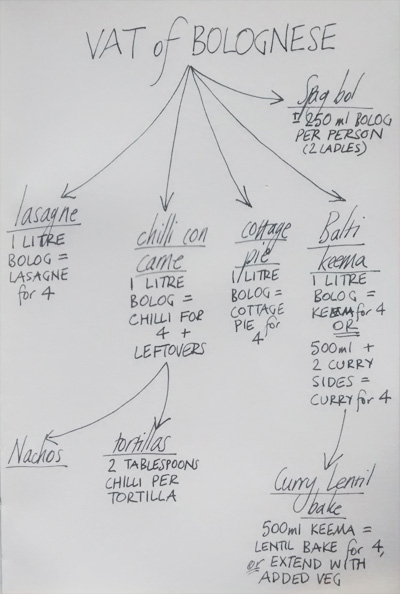 VAT of BOLOGNESE
Spag bol
250 ml BOLOG
PER PERSON
(2 LADLES)
lasagne
1 LITRE
BOLOG =
LASAGNE
for 4
chilli con
carne
1 LITRE
BOLOG =
CHILLI FOR
4 +
LEFTOVERS
cottage
pie
1 LITRE
BOLOG =
COTTAGE
PIE for
4
Balti
keema
1 LITRE
BOLOG =
KEEMA for 4
OR
500ml +
2 CURRY
SIDES =
CURRY for 4
Nachos
tortillas
2 TABLESPOONS
CHILLI PER
TORTILLA
Curry Lentil
bake
500ml KEEMA =
LENTIL BAKE for 4,
or EXTEND WITH
ADDED VEG